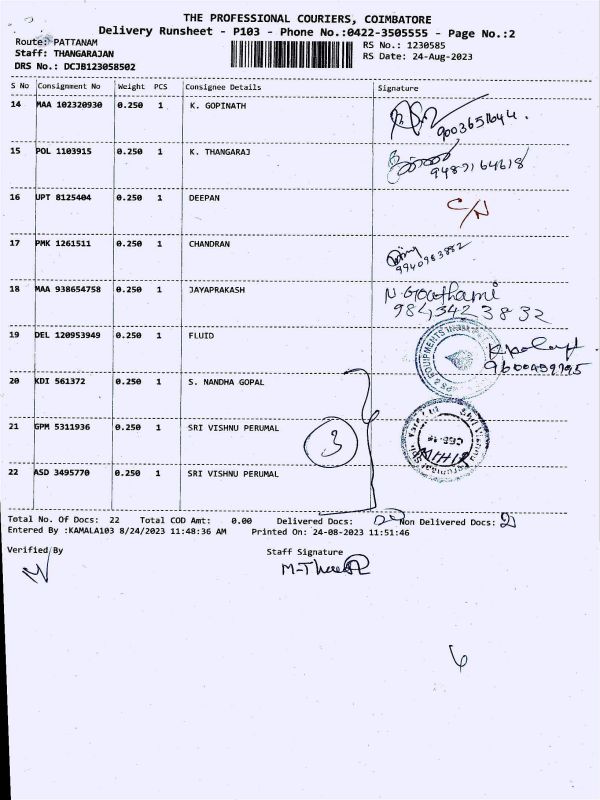 THE PROFESSIONAL COURIERS, COIMBATORE
Delivery Runsheet - P103 - Phone No.:0422-3505555 - Page No.:2
Route: PATTANAM RS No.: 1230585
Staff: THANGARAJAN RS Date: 24-Aug-2023
DRS No.: DCJB123058502
S No Consignment No Weight PCS Consignee Details Signature
14 MAA 102320930 0.250 1 K. GOPINATH
9003651644.
15 POL 1103915 0.250 1 K. THANGARAJ
9487164618
16 UPT 8125404 0.250 1 DEEPAN C/N
17 PMK 1261511 0.250 1 CHANDRAN
9940963882
18 MAA 938654758 0.250 1 JAYAPRAKASH N. Gowthami
9843423832
19 DEL 120953949 0.250 1 FLUID
20 KDI 561372 0.250 1 S. NANDHA GOPAL
21 GPM 5311936 0.250 1 SRI VISHNU PERUMAL 3
22 ASD 3495770 0.250 1 SRI VISHNU PERUMAL
Total No. Of Docs: 22 Total COD Amt: 0.00 Delivered Docs: 20 Non Delivered Docs: 2
Entered By :KAMALA103 8/24/2023 11:48:36 AM Printed On: 24-08-2023 11:51:46
Verified By Staff Signature